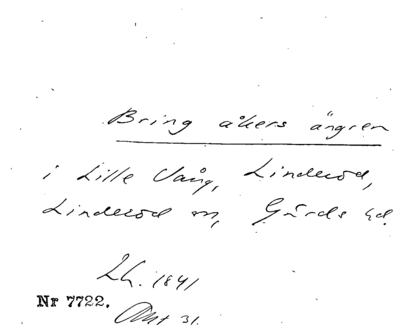 Bring åkers ängren
i Lille Vång, Linderöd,
Linderöd sn, Gärds hd.
Lh. 1841
Nr 7722.
Akt 31.